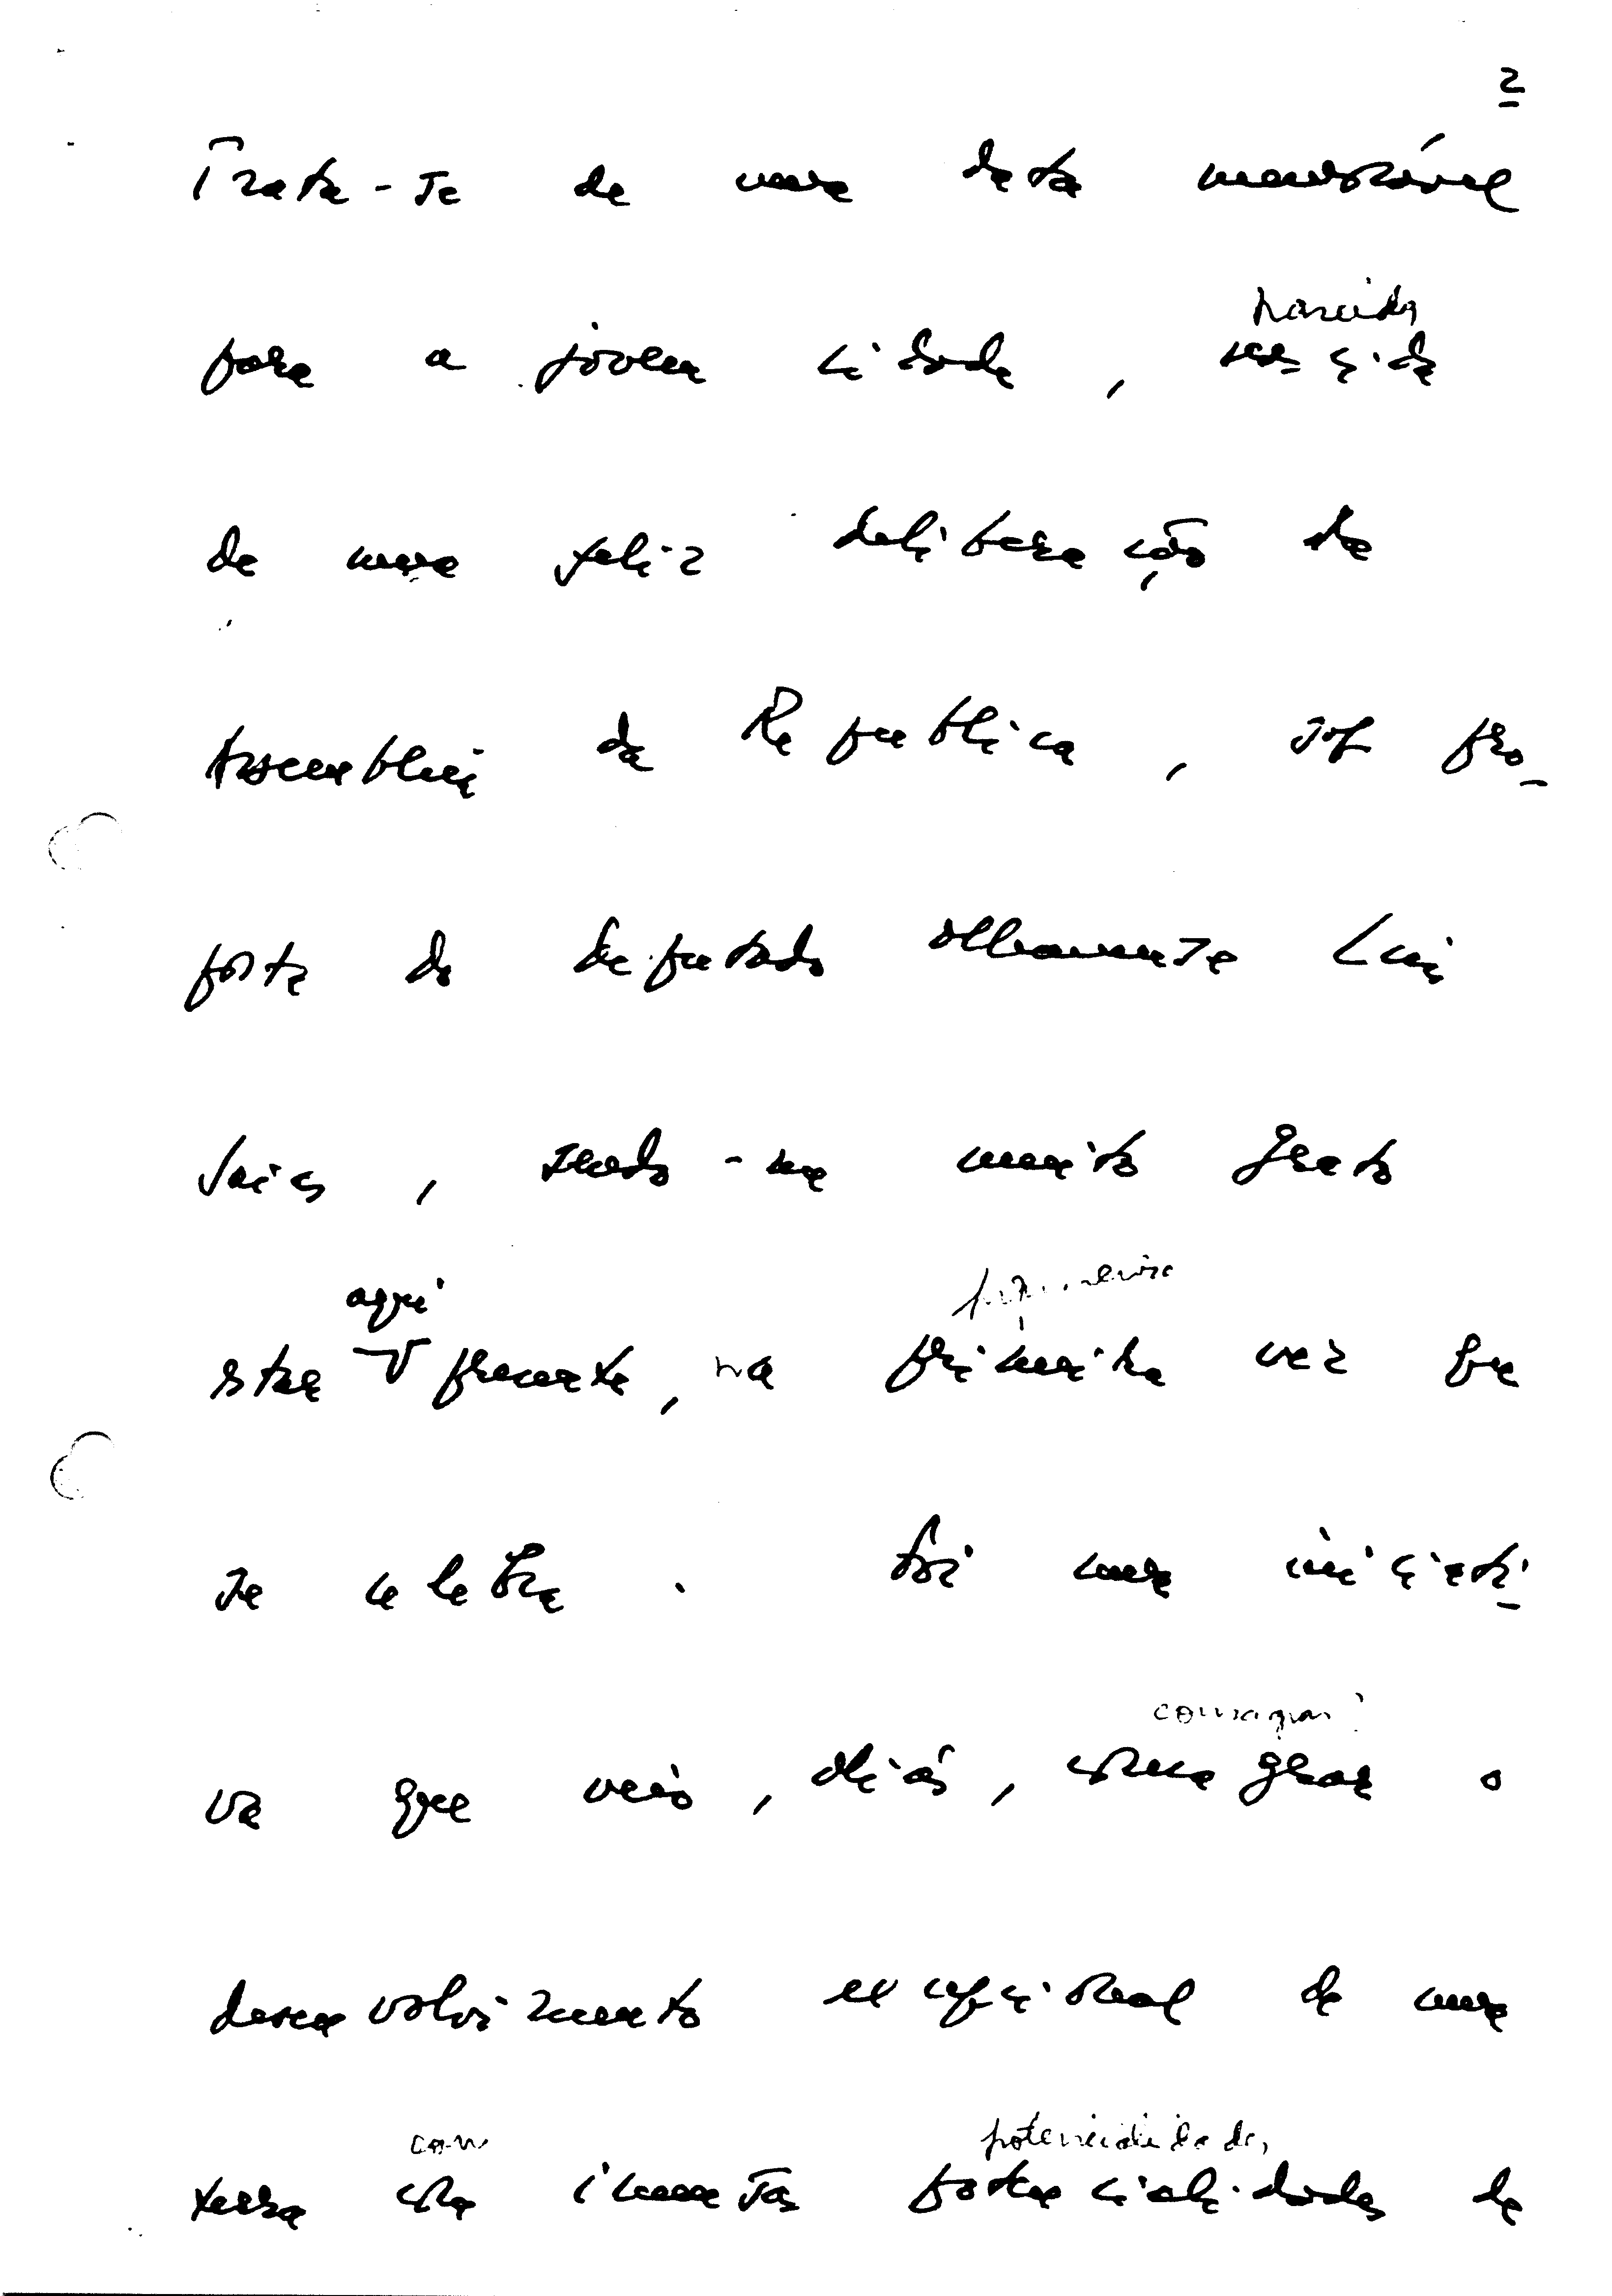 2
Trata-se de uma data memorável
nascida
para a jovem cidade, nascida
de uma feliz deliberação da
Assembleia da República, sob pro-
posta do deputado
, sendo-me muito grato
aqui
estar presente, na primeira vez que
se celebra. Foi uma iniciati-
va que veio, aliás, consagrar o
consagrar
desenvolvimento excepcional de uma
com potencialidades
terra com imensas potencialidades de